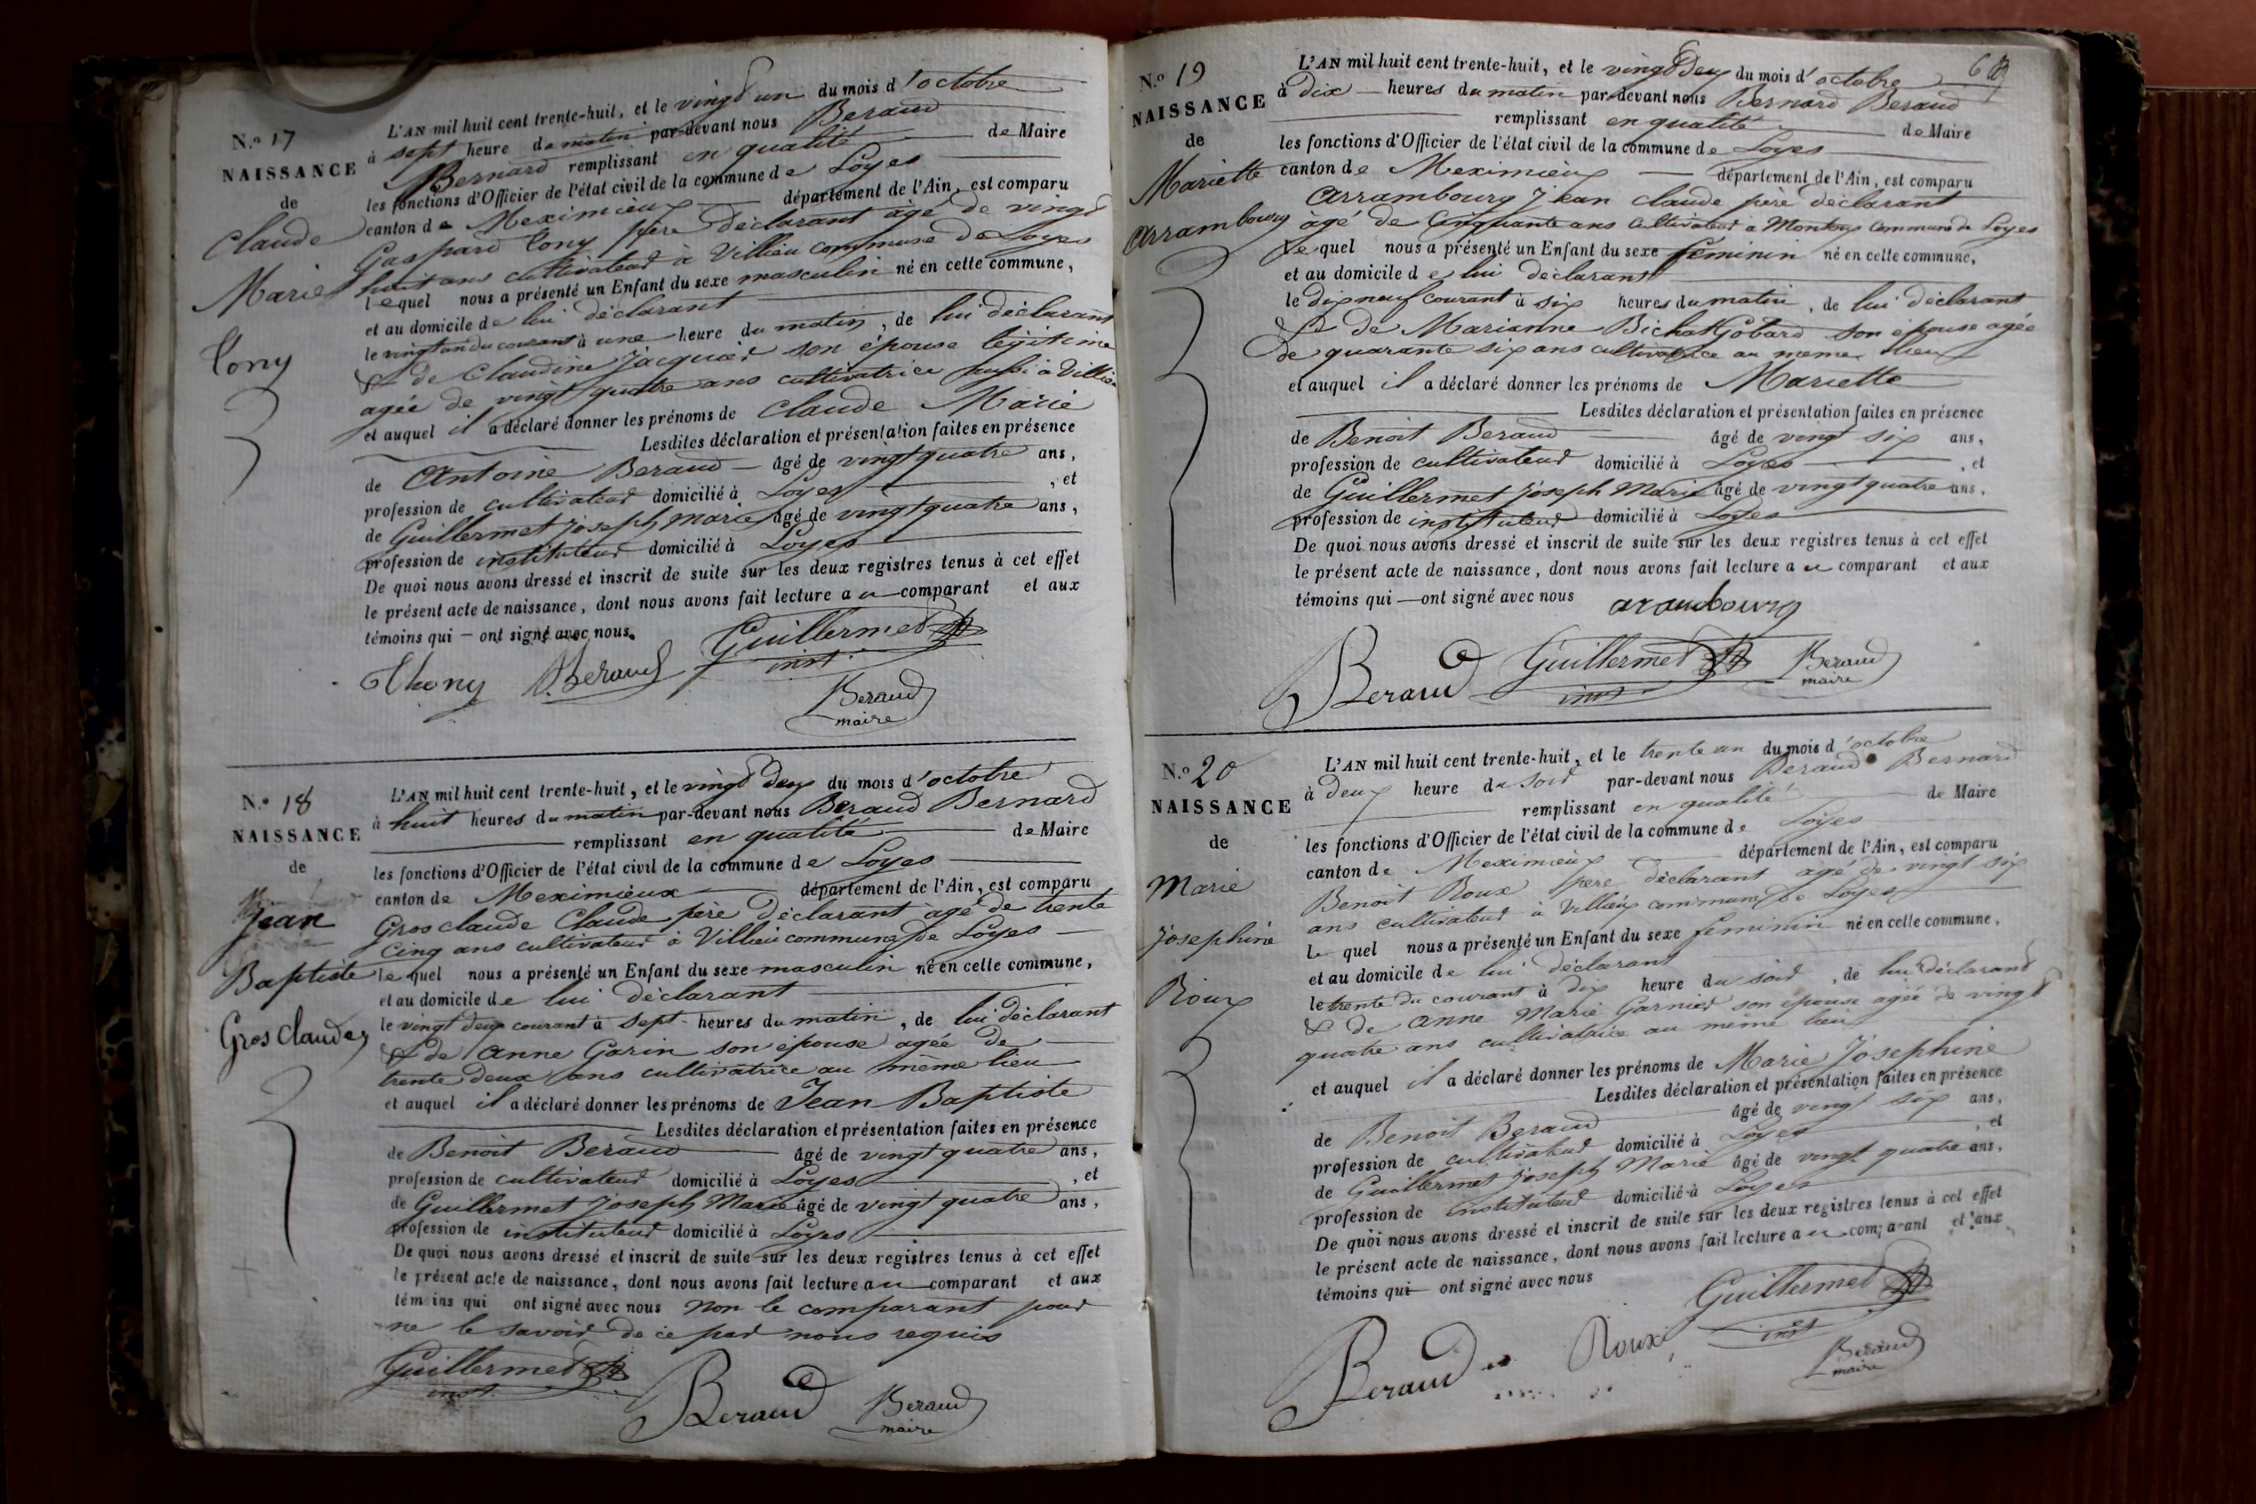 N.o 17
NAISSANCE
de
Claude
Marie
Tony
L'AN mil huit cent trente-huit, et le vingt un du mois d'octobre
à sept heure du matin par-devant nous Beraud
Bernard remplissant en qualité de Maire
les fonctions d'Officier de l'état civil de la commune de Loyes
canton de Meximieux département de l'Ain, est comparu
Gaspard Tony père déclarant âgé de vingt
huit ans cultivateur à Villieu commune de Loyes
lequel nous a présenté un Enfant du sexe masculin né en cette commune,
et au domicile de lui déclarant
le vingt un du courant à une heure du matin, de lui déclarant
& de Claudine Jacquier son épouse légitime
agée de vingt quatre ans cultivatrice aussi à Villieu
et auquel il a déclaré donner les prénoms de Claude Marie
Lesdites déclaration et présentation faites en présence
de Antoine Beraud âgé de vingt quatre ans,
profession de cultivateur domicilié à Loyes, et
de Guillermet joseph marie âgé de vingt quatre ans,
profession de instituteur domicilié à Loyes
De quoi nous avons dressé et inscrit de suite sur les deux registres tenus à cet effet
le présent acte de naissance, dont nous avons fait lecture au comparant et aux
témoins qui ont signé avec nous.
Thony Beraud Guillermet
inst.
Beraud
maire
N.o 18
NAISSANCE
de
Jean
Baptiste
Grosclaude
L'AN mil huit cent trente-huit, et le vingt deux du mois d'octobre
à huit heures du matin par-devant nous Beraud Bernard
remplissant en qualité de Maire
les fonctions d'Officier de l'état civil de la commune de Loyes
canton de Meximieux département de l'Ain, est comparu
Grosclaude Claude père déclarant agé de trente
cinq ans cultivateur à Villieu commune de Loyes
lequel nous a présenté un Enfant du sexe masculin né en cette commune,
et au domicile de lui déclarant
le vingt deux courant à sept heures du matin, de lui déclarant
& de Anne Garin son épouse agée de
trente deux ans cultivatrice au même lieu
et auquel il a déclaré donner les prénoms de Jean Baptiste
Lesdites déclaration et présentation faites en présence
de Benoit Beraud âgé de vingt quatre ans,
profession de cultivateur domicilié à Loyes, et
de Guillermet Joseph Marie âgé de vingt quatre ans,
profession de instituteur domicilié à Loyes
De quoi nous avons dressé et inscrit de suite sur les deux registres tenus à cet effet
le présent acte de naissance, dont nous avons fait lecture au comparant et aux
témoins qui ont signé avec nous non le comparant pour
ne le savoir de ce par nous requis
Guillermet
inst.
Beraud Beraud
maire
N.o 19
NAISSANCE
de
Mariette
Arrambourg
L'AN mil huit cent trente-huit, et le vingt deux du mois d'octobre
à dix heures du matin par-devant nous Bernard Beraud
remplissant en qualité de Maire
les fonctions d'Officier de l'état civil de la commune de Loyes
canton de Meximieux département de l'Ain, est comparu
Arrambourg Jean claude père déclarant
âgé de Cinquante ans cultivateur à Monthoz commune de Loyes
Lequel nous a présenté un Enfant du sexe féminin né en cette commune,
et au domicile de lui déclarant
le dix neuf courant à six heures du matin, de lui déclarant
& de Marianne Bichat Gobard son épouse agée
de quarante six ans cultivatrice au meme lieu
et auquel il a déclaré donner les prénoms de Mariette
Lesdites déclaration et présentation faites en présence
de Benoit Beraud âgé de vingt six ans,
profession de cultivateur domicilié à Loyes, et
de Guillermet joseph Marie âgé de vingt quatre ans,
profession de instituteur domicilié à Loyes
De quoi nous avons dressé et inscrit de suite sur les deux registres tenus à cet effet
le présent acte de naissance, dont nous avons fait lecture au comparant et aux
témoins qui ont signé avec nous arambourg
Beraud Guillermet Beraud
inst. maire
N.o 20
NAISSANCE
de
Marie
josephine
Roux
L'AN mil huit cent trente-huit, et le trente un du mois d'octobre
à deux heure du soir par-devant nous Beraud Bernard
remplissant en qualité de Maire
les fonctions d'Officier de l'état civil de la commune de Loyes
canton de Meximieux département de l'Ain, est comparu
Benoit Roux père déclarant agé de vingt six
ans cultivateur à Villieu commune de Loyes
Le quel nous a présenté un Enfant du sexe feminin né en cette commune,
et au domicile de lui déclarant
le trente du courant à dix heure du soir, de lui déclarant
& de Anne Marie Garnier son épouse agée de vingt
quatre ans cultivatrice au même lieu
et auquel il a déclaré donner les prénoms de Marie Josephine
Lesdites déclaration et présentation faites en présence
de Benoit Beraud âgé de vingt six ans,
profession de cultivateur domicilié à Loyes, et
de Guillermet joseph Marie âgé de vingt quatre ans,
profession de instituteur domicilié à Loyes
De quoi nous avons dressé et inscrit de suite sur les deux registres tenus à cet effet
le présent acte de naissance, dont nous avons fait lecture au comparant et aux
témoins qui ont signé avec nous
Guillermet
inst
Beraud Roux Beraud
maire